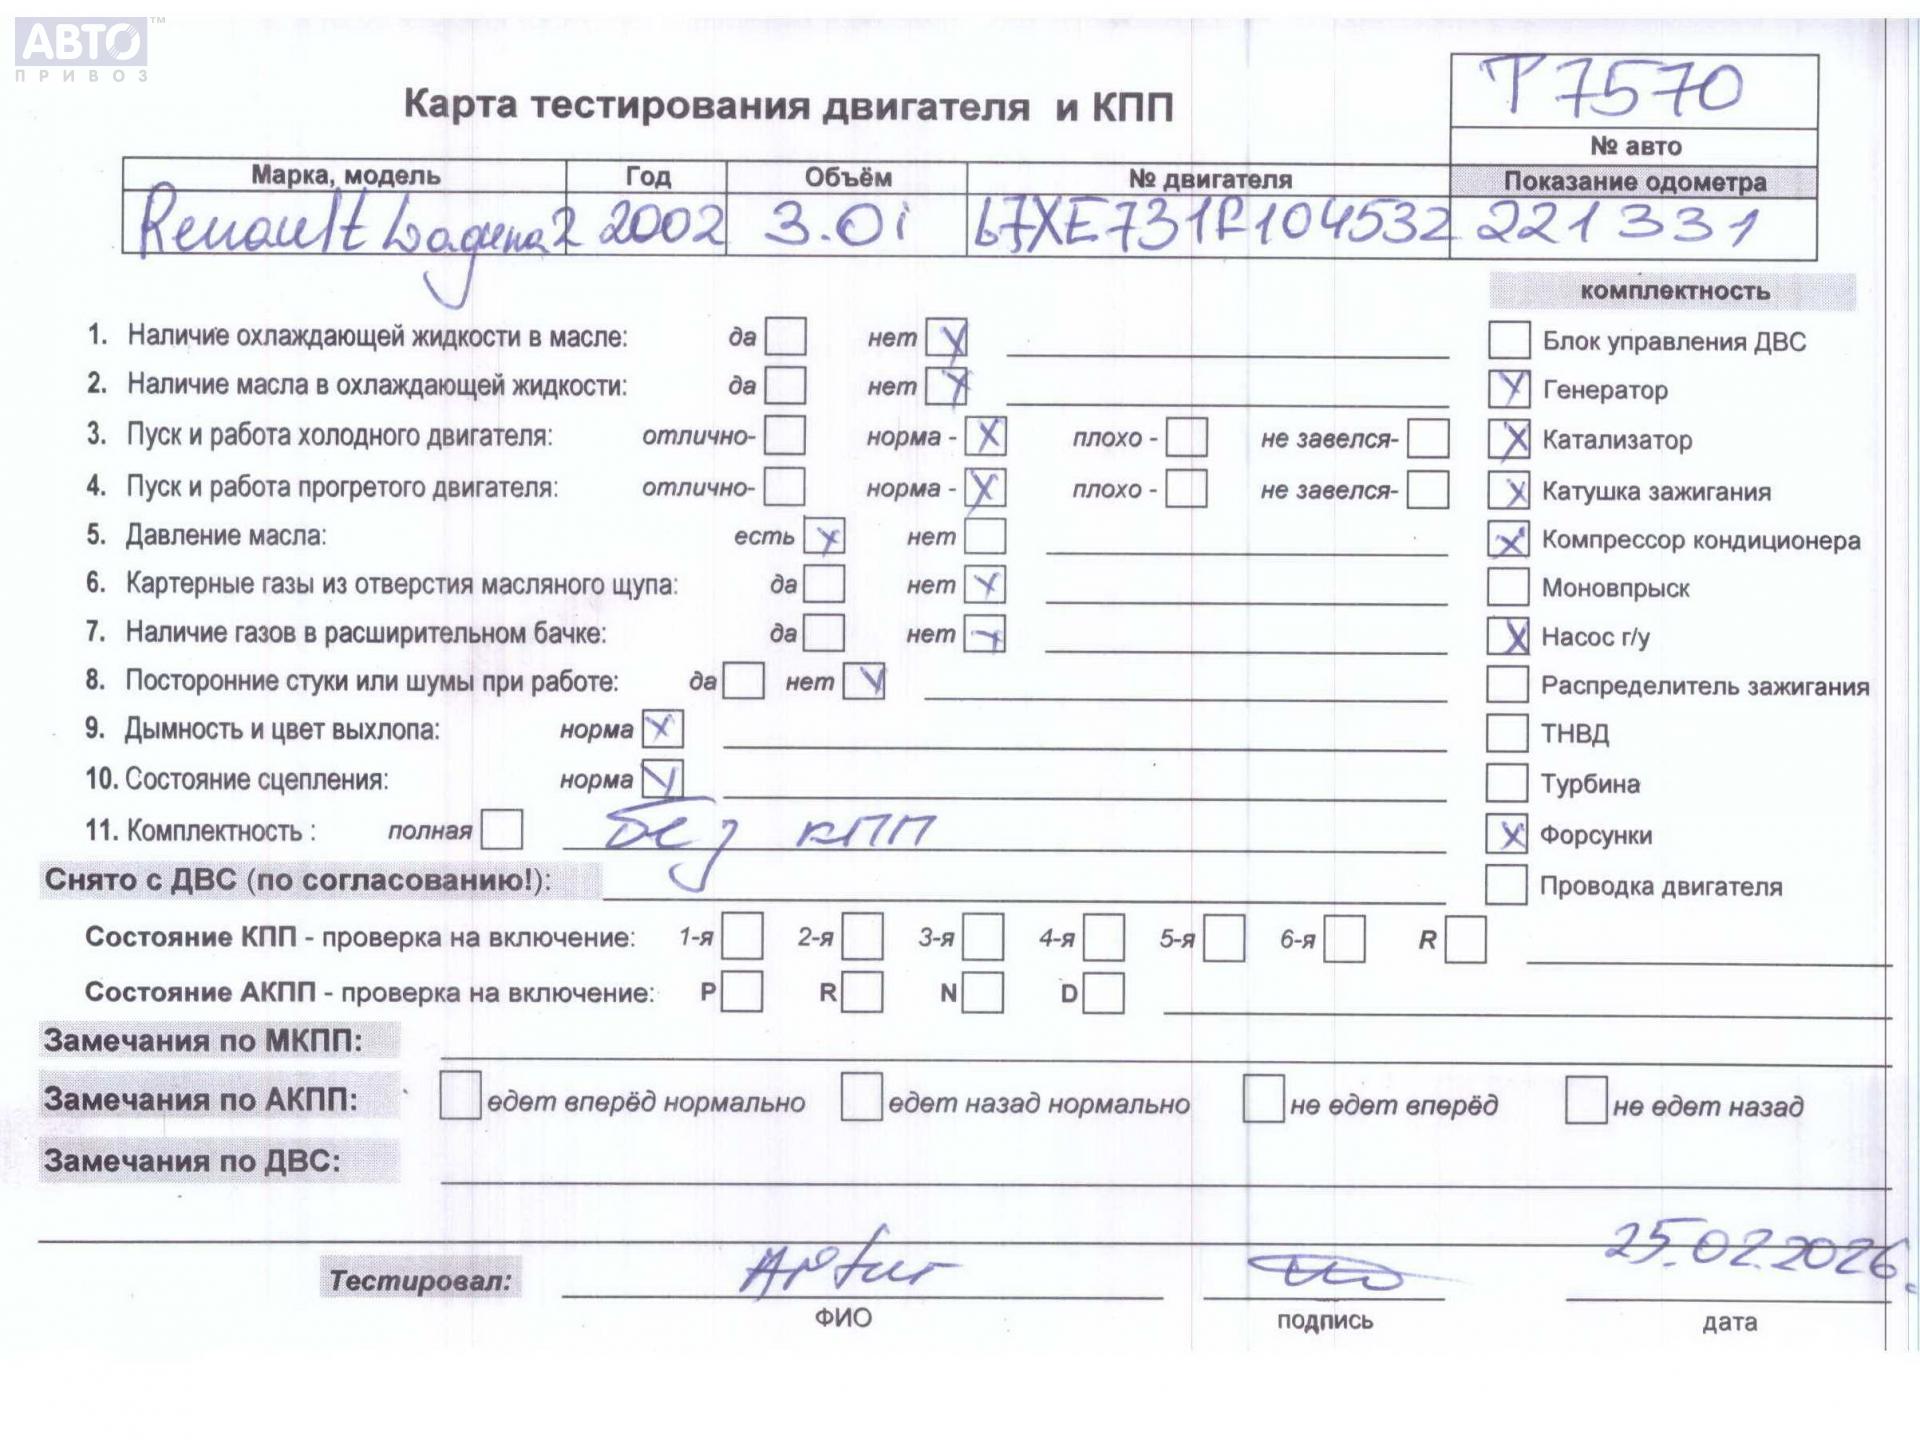 АВТО™
ПРИВОЗ
Карта тестирования двигателя и КПП
Т7570
№ авто
Марка, модель Год Объём № двигателя Показание одометра
Renault Laguna 2 2002 3.0i L7XE731F104532 221331
комплектность
1. Наличие охлаждающей жидкости в масле: да нет
Блок управления ДВС
2. Наличие масла в охлаждающей жидкости: да нет
Генератор
3. Пуск и работа холодного двигателя: отлично- норма - плохо - не завелся-
Катализатор
4. Пуск и работа прогретого двигателя: отлично- норма - плохо - не завелся-
Катушка зажигания
5. Давление масла: есть нет
Компрессор кондиционера
6. Картерные газы из отверстия масляного щупа: да нет
Моновпрыск
7. Наличие газов в расширительном бачке: да нет
Насос г/у
8. Посторонние стуки или шумы при работе: да нет
Распределитель зажигания
9. Дымность и цвет выхлопа: норма
ТНВД
10. Состояние сцепления: норма
Турбина
11. Комплектность : полная без КПП
Форсунки
Снято с ДВС (по согласованию!):
Проводка двигателя
Состояние КПП - проверка на включение: 1-я 2-я 3-я 4-я 5-я 6-я R
Состояние АКПП - проверка на включение: P R N D
Замечания по МКПП:
Замечания по АКПП: едет вперёд нормально едет назад нормально не едет вперёд не едет назад
Замечания по ДВС:
Тестировал: Artur 25.02.2026.
ФИО подпись дата